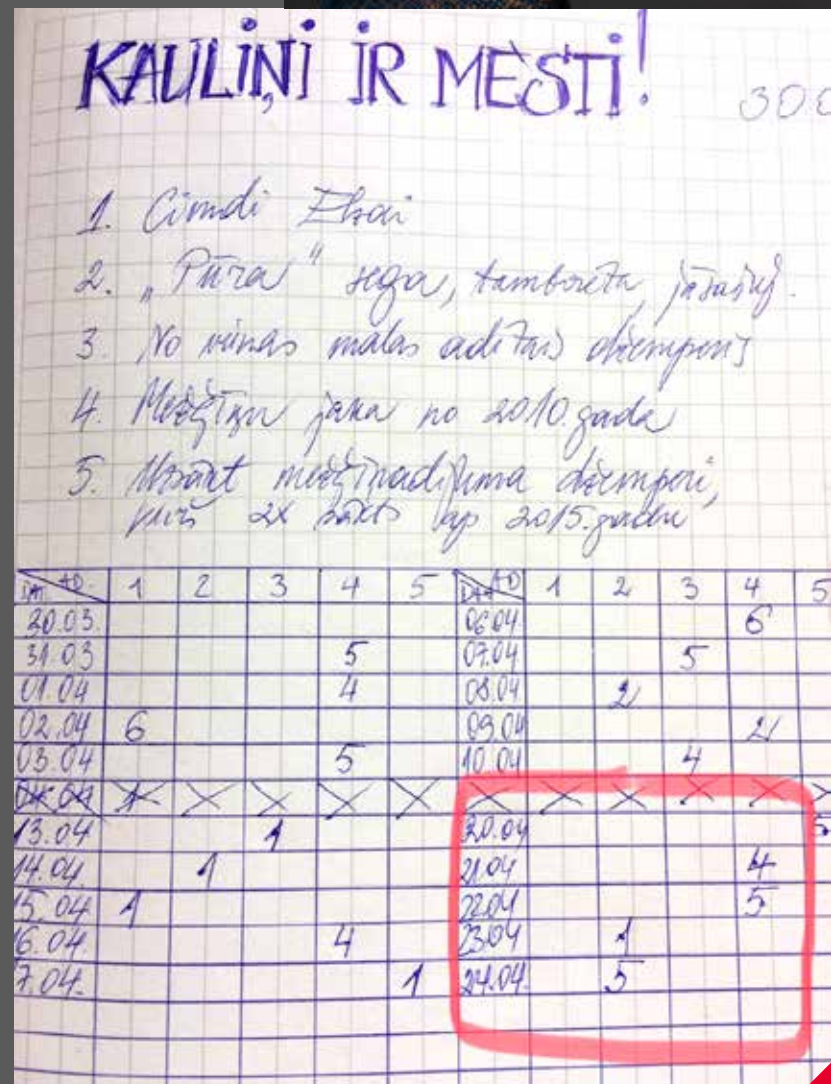 KAULIŅI IR MESTI!
300
1. Cimdi Elzai
2. „Pūra" sega, tamborēta, jāsašuj.
3. No vienas malas adītais džemperis
4. Mežģīņu jaka no 2010. gada
5. Uzsākt mežģīņadījuma džemperi,
kurš 2x sākts ap 2015. gadu
DAT. AD. 1 2 3 4 5 DAT AD 1 2 3 4 5
30.03. 06.04 6
31.03 5 07.04 5
01.04 4 08.04 2
02.04 6 09.04 2
03.04 5 10.04 4
13.04 1 20.04 5
14.04. 1 21.04 4
15.04 1 22.04 5
16.04. 4 23.04 1
17.04. 1 24.04. 5